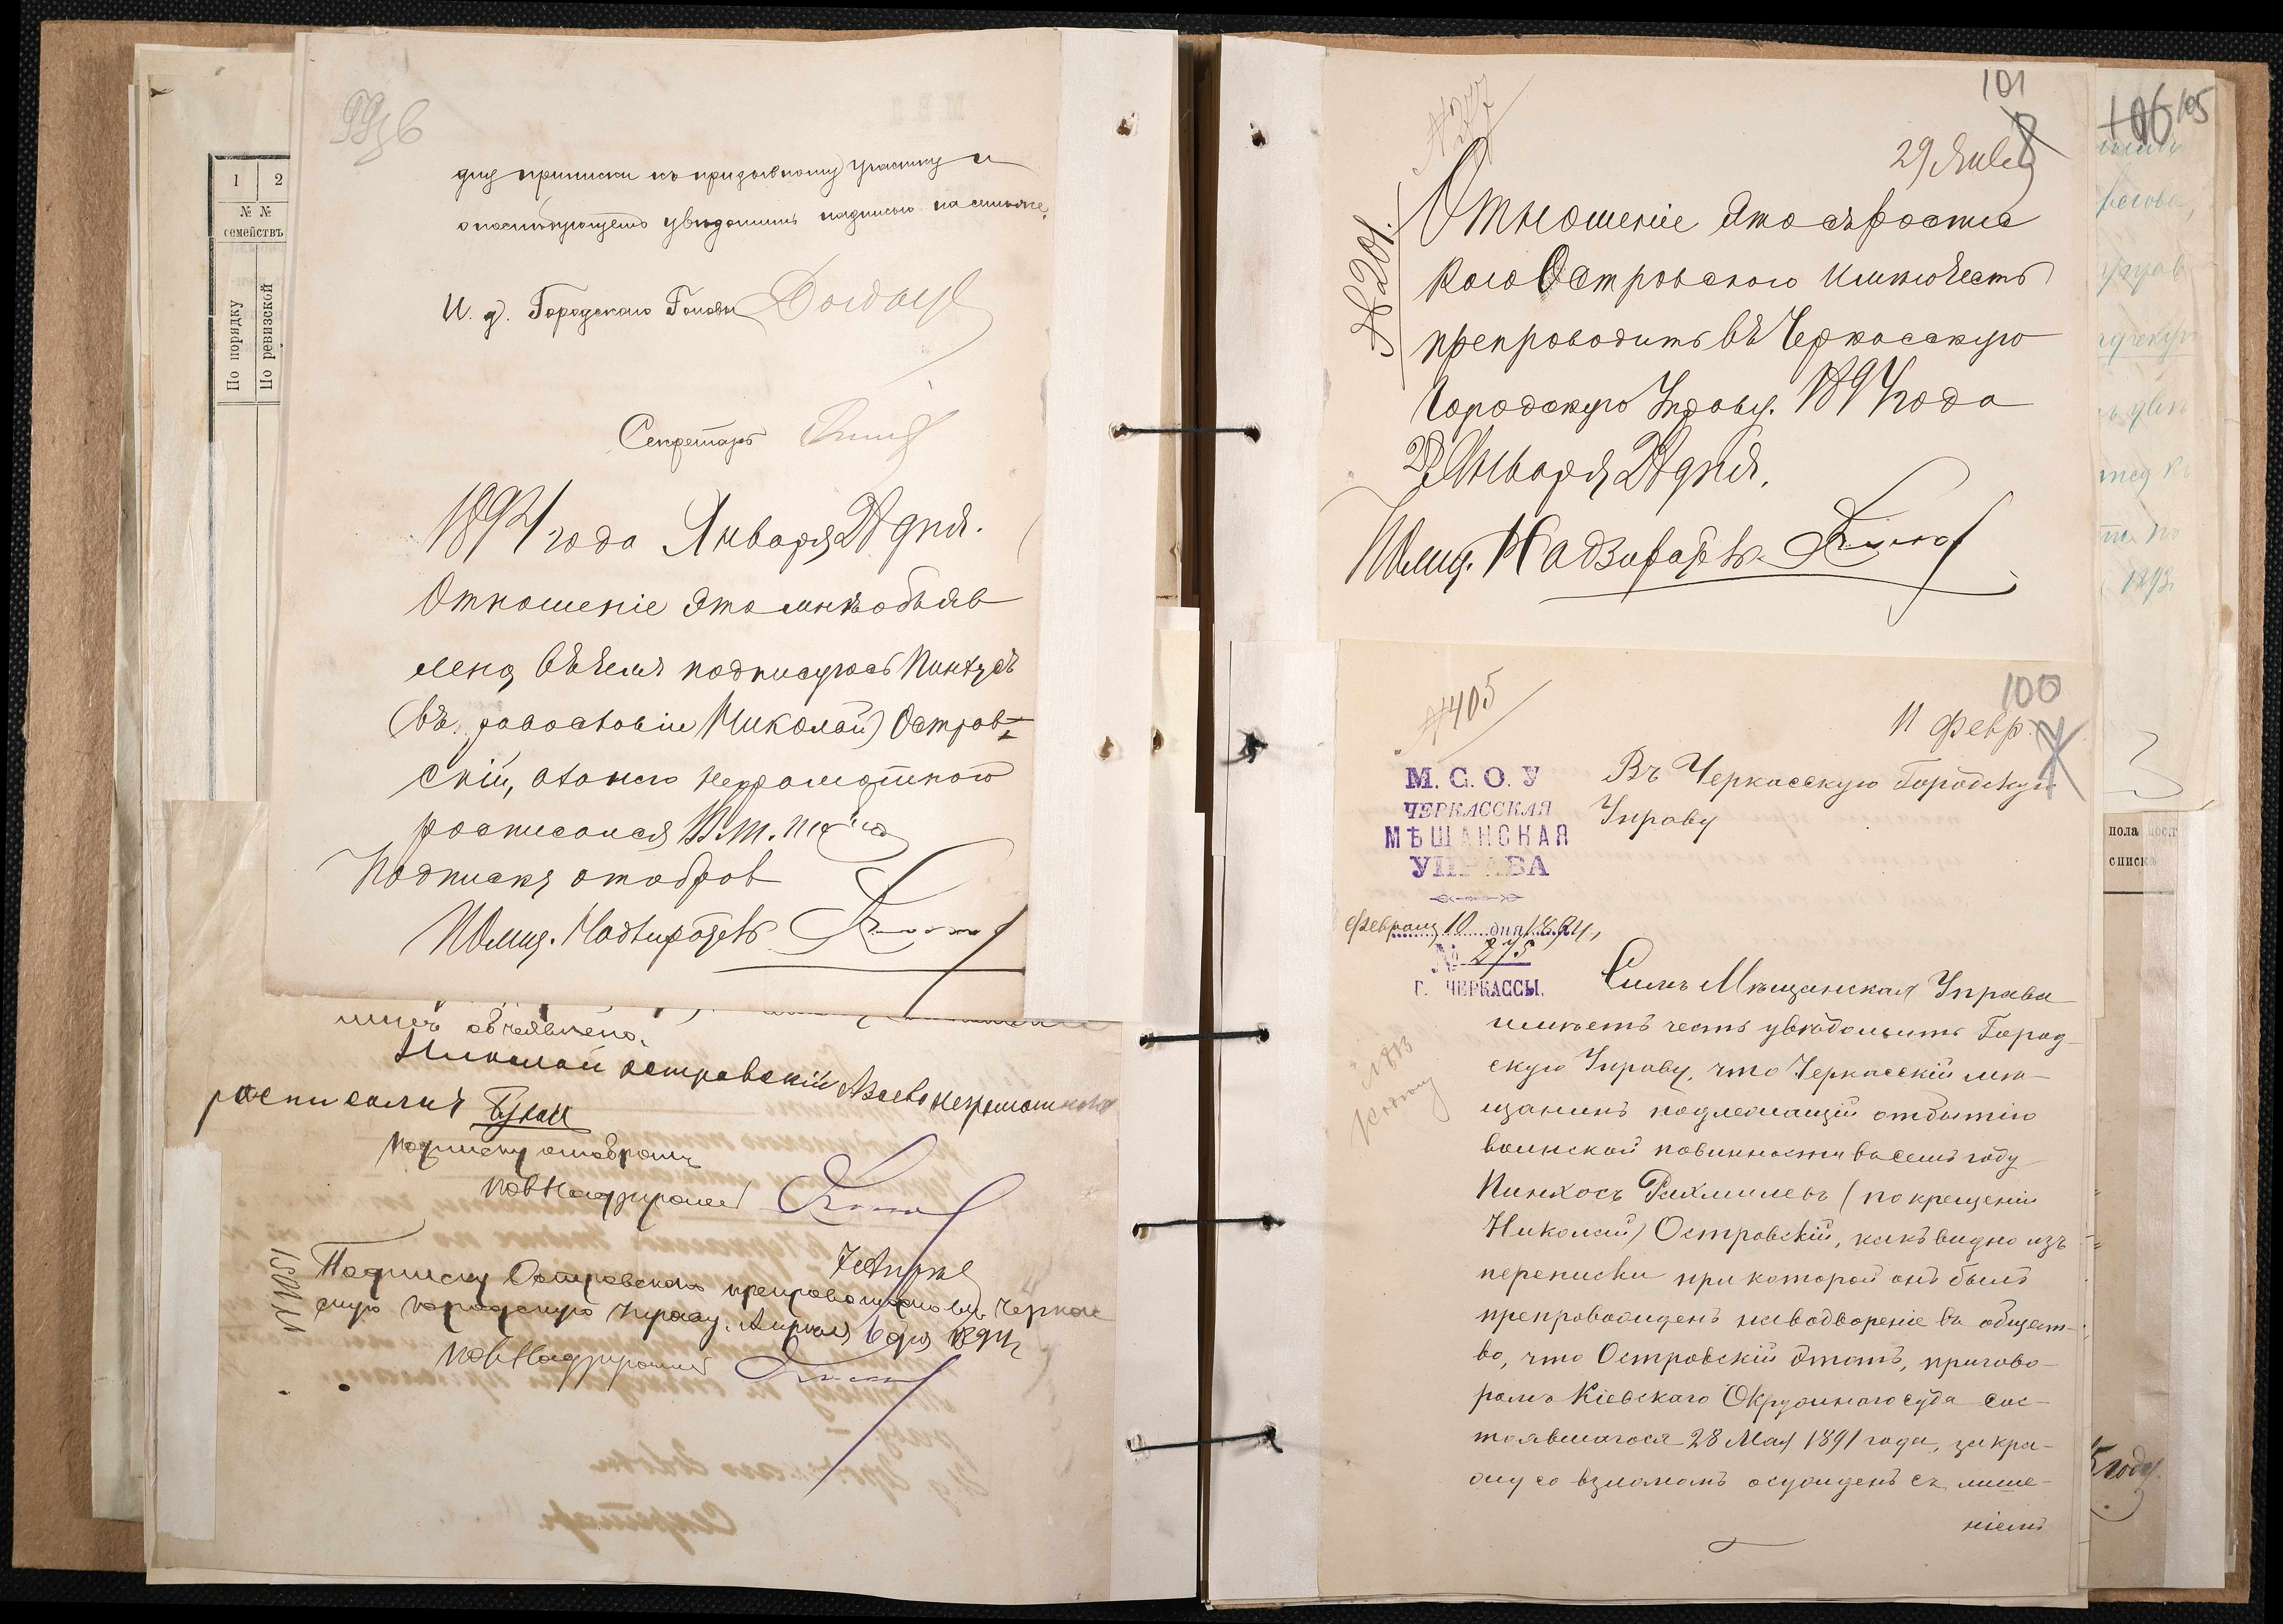 1
2
№ №
семействъ
По порядку
По ревизской
99 об
для приписки къ призывному участку и
о послѣдующемъ увѣдомить надписью на семъ же.
И. д. Городскаго Головы
Секретарь
1894 года Января 28 дня.
Отношеніе это мнѣ объяв
лено, въ чемъ подписуюсь Пинхусъ
(въ православіи Николай) Остров-
скій, а за него неграмотного
росписался
Подписку отобралъ
Полиц. Надзиратель
мнѣ объявлено.
Николай островскій А за его неграмотного
росписался
Подписку отобралъ
Пол Надзиратель
7 Апрѣля
№ 1051
Подписку Островскаго препровождаю въ Черкас
скую Городскую Управу. Апрѣля 6 дня 1894 г.
Пол Надзиратель
Секретарь
101
№ 277
29 Янв
№ 201.
Отношеніе это съ роспис
кою Островского имѣю честь
препроводить въ Черкасскую
Городскую Управу. 1894 года
Января 28 дня.
Полиц. Надзиратель
105
1893
100
№ 405
11 февр.
М. С. О. У
ЧЕРКАССКАЯ
МѢЩАНСКАЯ
УПРАВА
Февраля 10 дня 1894 г.
№ 275
Г. ЧЕРКАССЫ.
Въ Черкасскую Городскую
Управу
Симъ Мѣщанская Управа
имѣетъ честь увѣдомить Город-
скую Управу, что Черкасскій мѣ-
щанинъ подлежащій отбытію
воинской повинности въ семъ году
Пинхосъ Рахмилевъ (по крещеніи
Николай) Островскій, какъ видно изъ
переписки при которой онъ былъ
препровожденъ на водвореніе въ общест-
во, что Островскій этотъ, пригово-
ромъ Кіевскаго Окружнаго суда сос-
тоявшагося 28 Мая 1891 года, за кра-
жу со взломомъ осужденъ съ лише-
ніемъ
пола
списк
5 году.